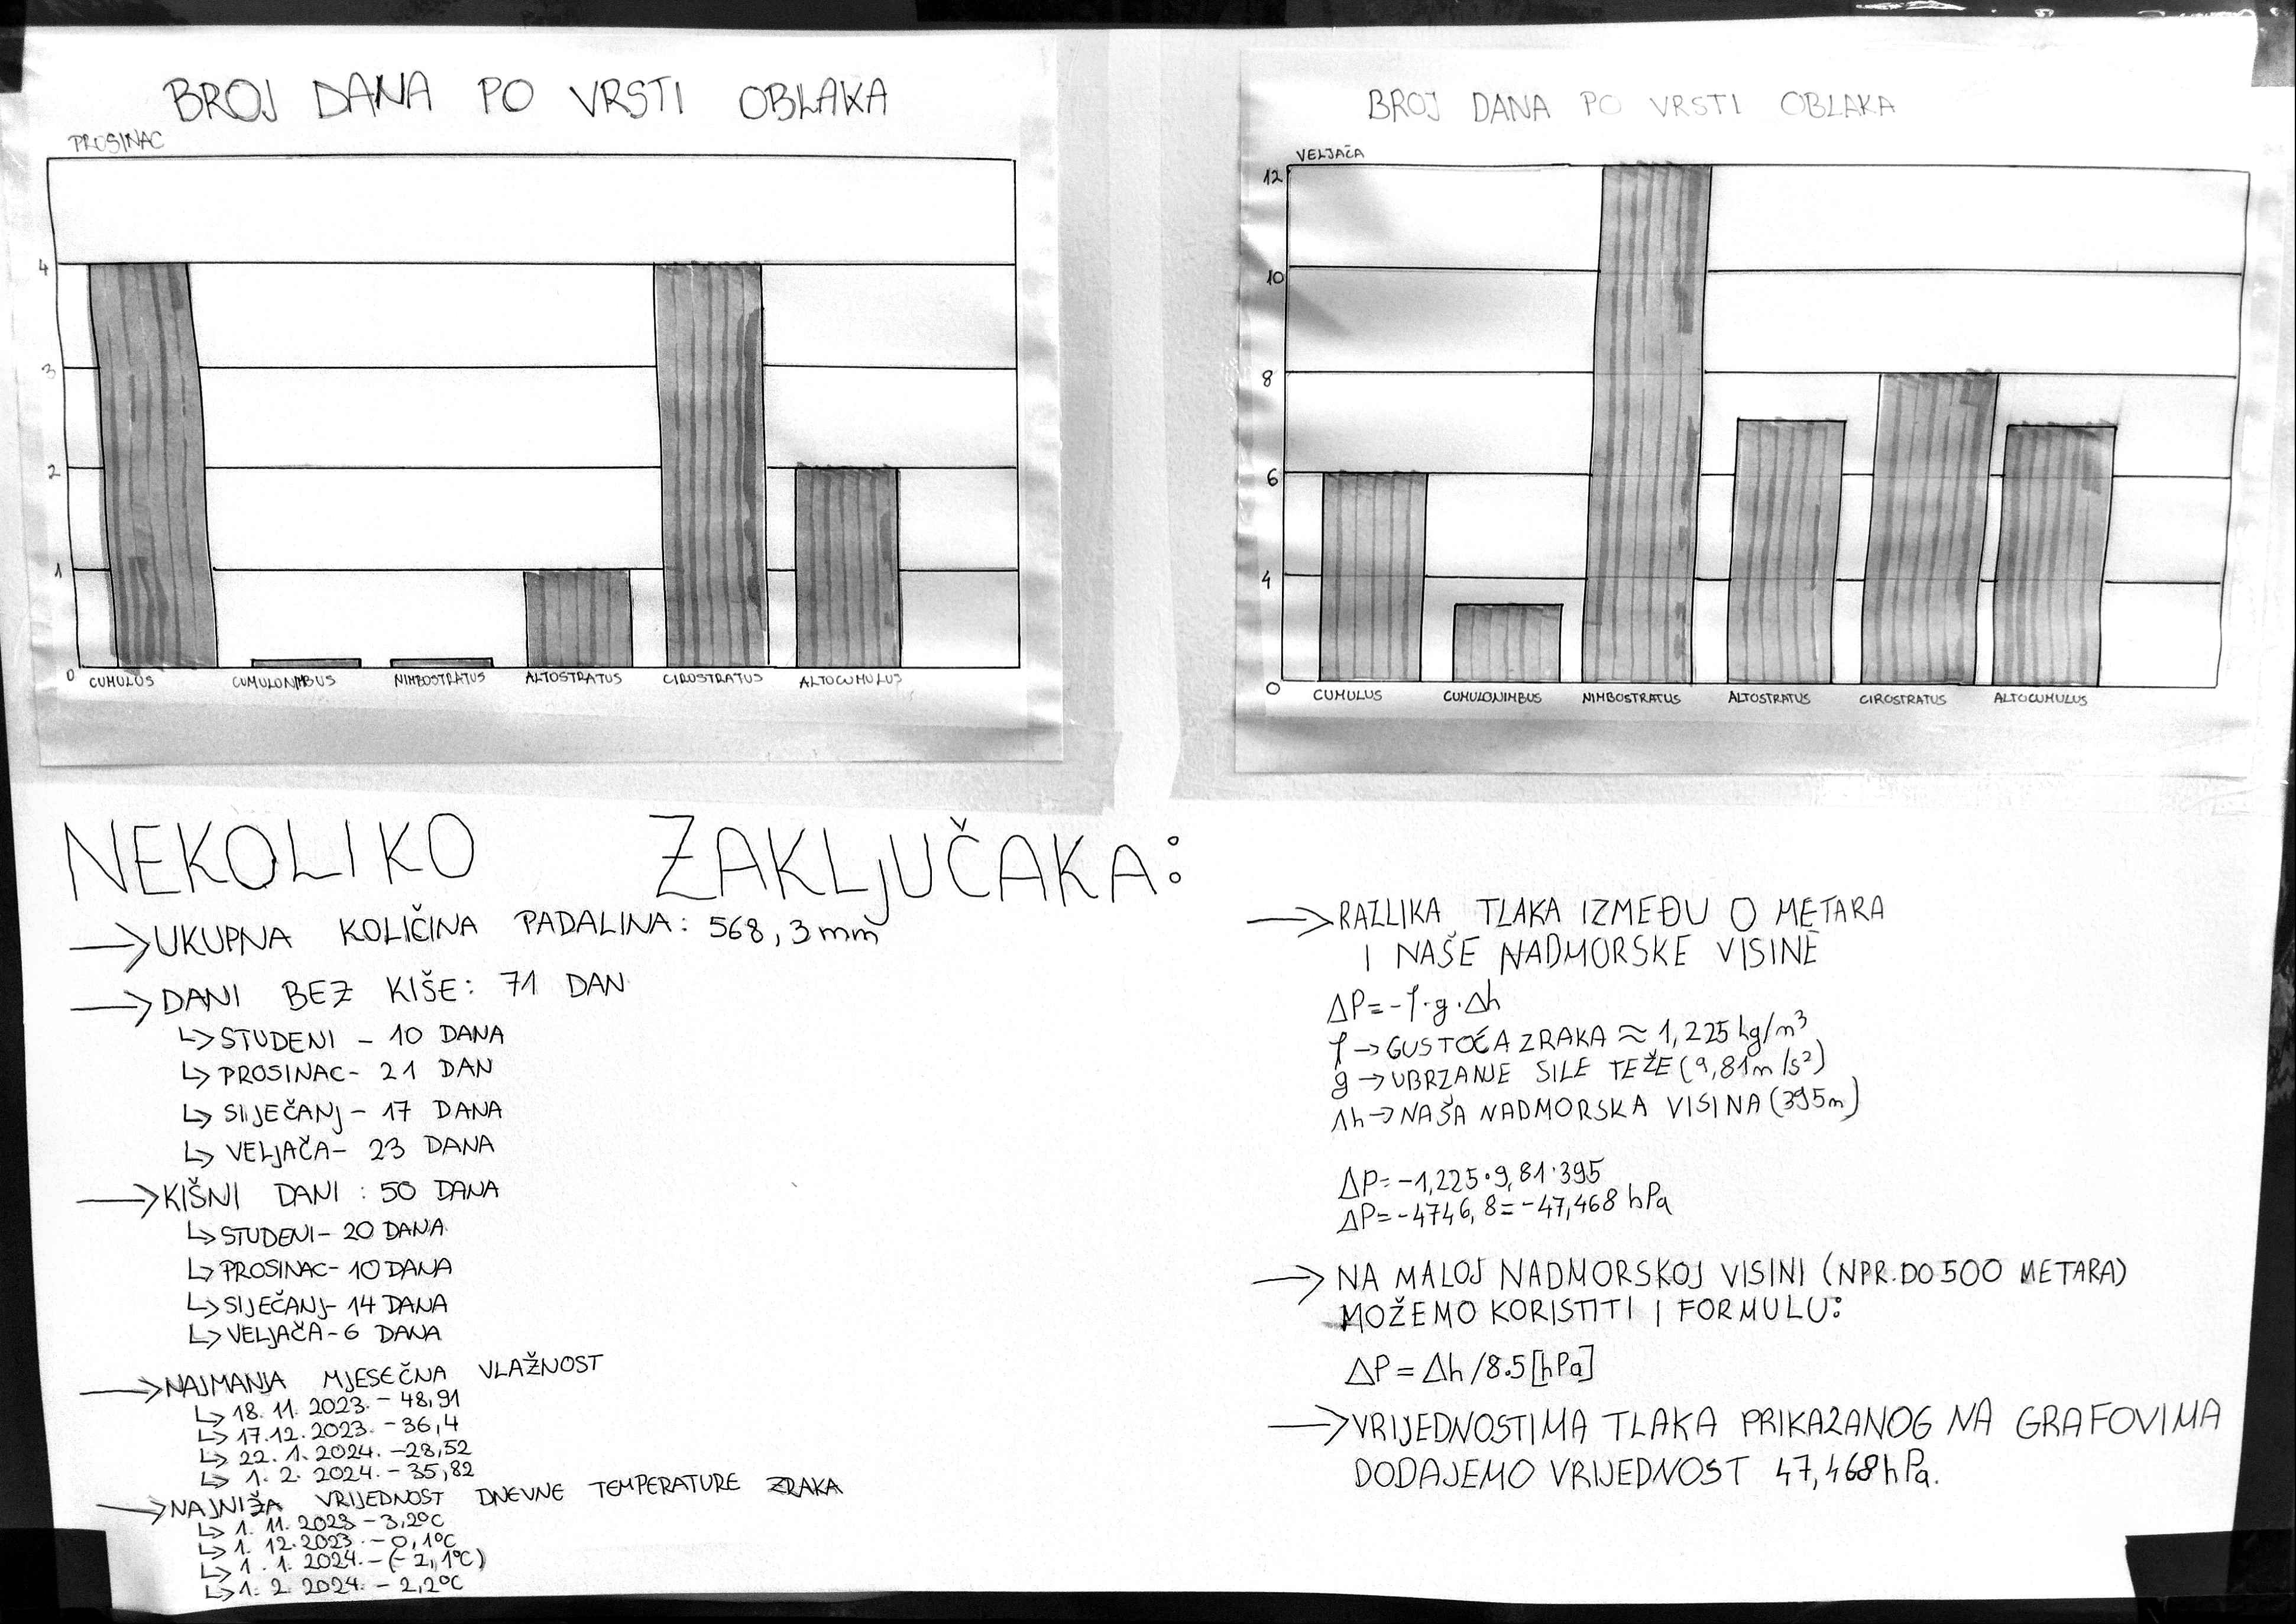 BROJ DANA PO VRSTI OBLAKA
PROSINAC
4
3
2
1
0
CUMULUS CUMULONIMBUS NIMBOSTRATUS ALTOSTRATUS CIROSTRATUS ALTOCUMULUS
BROJ DANA PO VRSTI OBLAKA
VELJAČA
12
10
8
6
4
0
CUMULUS CUMULONIMBUS NIMBOSTRATUS ALTOSTRATUS CIROSTRATUS ALTOCUMULUS
NEKOLIKO ZAKLJUČAKA:
→ UKUPNA KOLIČINA PADALINA: 568,3mm
→ DANI BEZ KIŠE: 71 DAN
↳ STUDENI - 10 DANA
↳ PROSINAC- 21 DAN
↳ SIJEČANJ - 17 DANA
↳ VELJAČA- 23 DANA
→ KIŠNI DANI : 50 DANA
↳ STUDENI- 20 DANA
↳ PROSINAC- 10 DANA
↳ SIJEČANJ- 14 DANA
↳ VELJAČA-6 DANA
→ NAJMANJA MJESEČNA VLAŽNOST
↳ 18. 11. 2023. - 48,91
↳ 17.12. 2023. - 36,4
↳ 22. 1. 2024. -28,52
↳ 1. 2. 2024. - 35,82
→ NAJNIŽA VRIJEDNOST DNEVNE TEMPERATURE ZRAKA
↳ 1. 11. 2023 - 3,2°C
↳ 1. 12. 2023. - 0,1°C
↳ 1. 1. 2024. - (-2,1°C)
↳ 1. 2. 2024. - 2,2°C
→ RAZLIKA TLAKA IZMEĐU 0 METARA
I NAŠE NADMORSKE VISINE
ΔP=-ρ·g·Δh
ρ → GUSTOĆA ZRAKA ≈ 1,225 kg/m³
g → UBRZANJE SILE TEŽE (9,81m/s²)
Δh → NAŠA NADMORSKA VISINA (395m)
ΔP=-1,225·9,81·395
ΔP=-4746,8=-47,468 hPa
→ NA MALOJ NADMORSKOJ VISINI (NPR. DO 500 METARA)
MOŽEMO KORISTITI I FORMULU:
ΔP = Δh /8.5 [hPa]
→ VRIJEDNOSTIMA TLAKA PRIKAZANOG NA GRAFOVIMA
DODAJEMO VRIJEDNOST 47,468hPa.